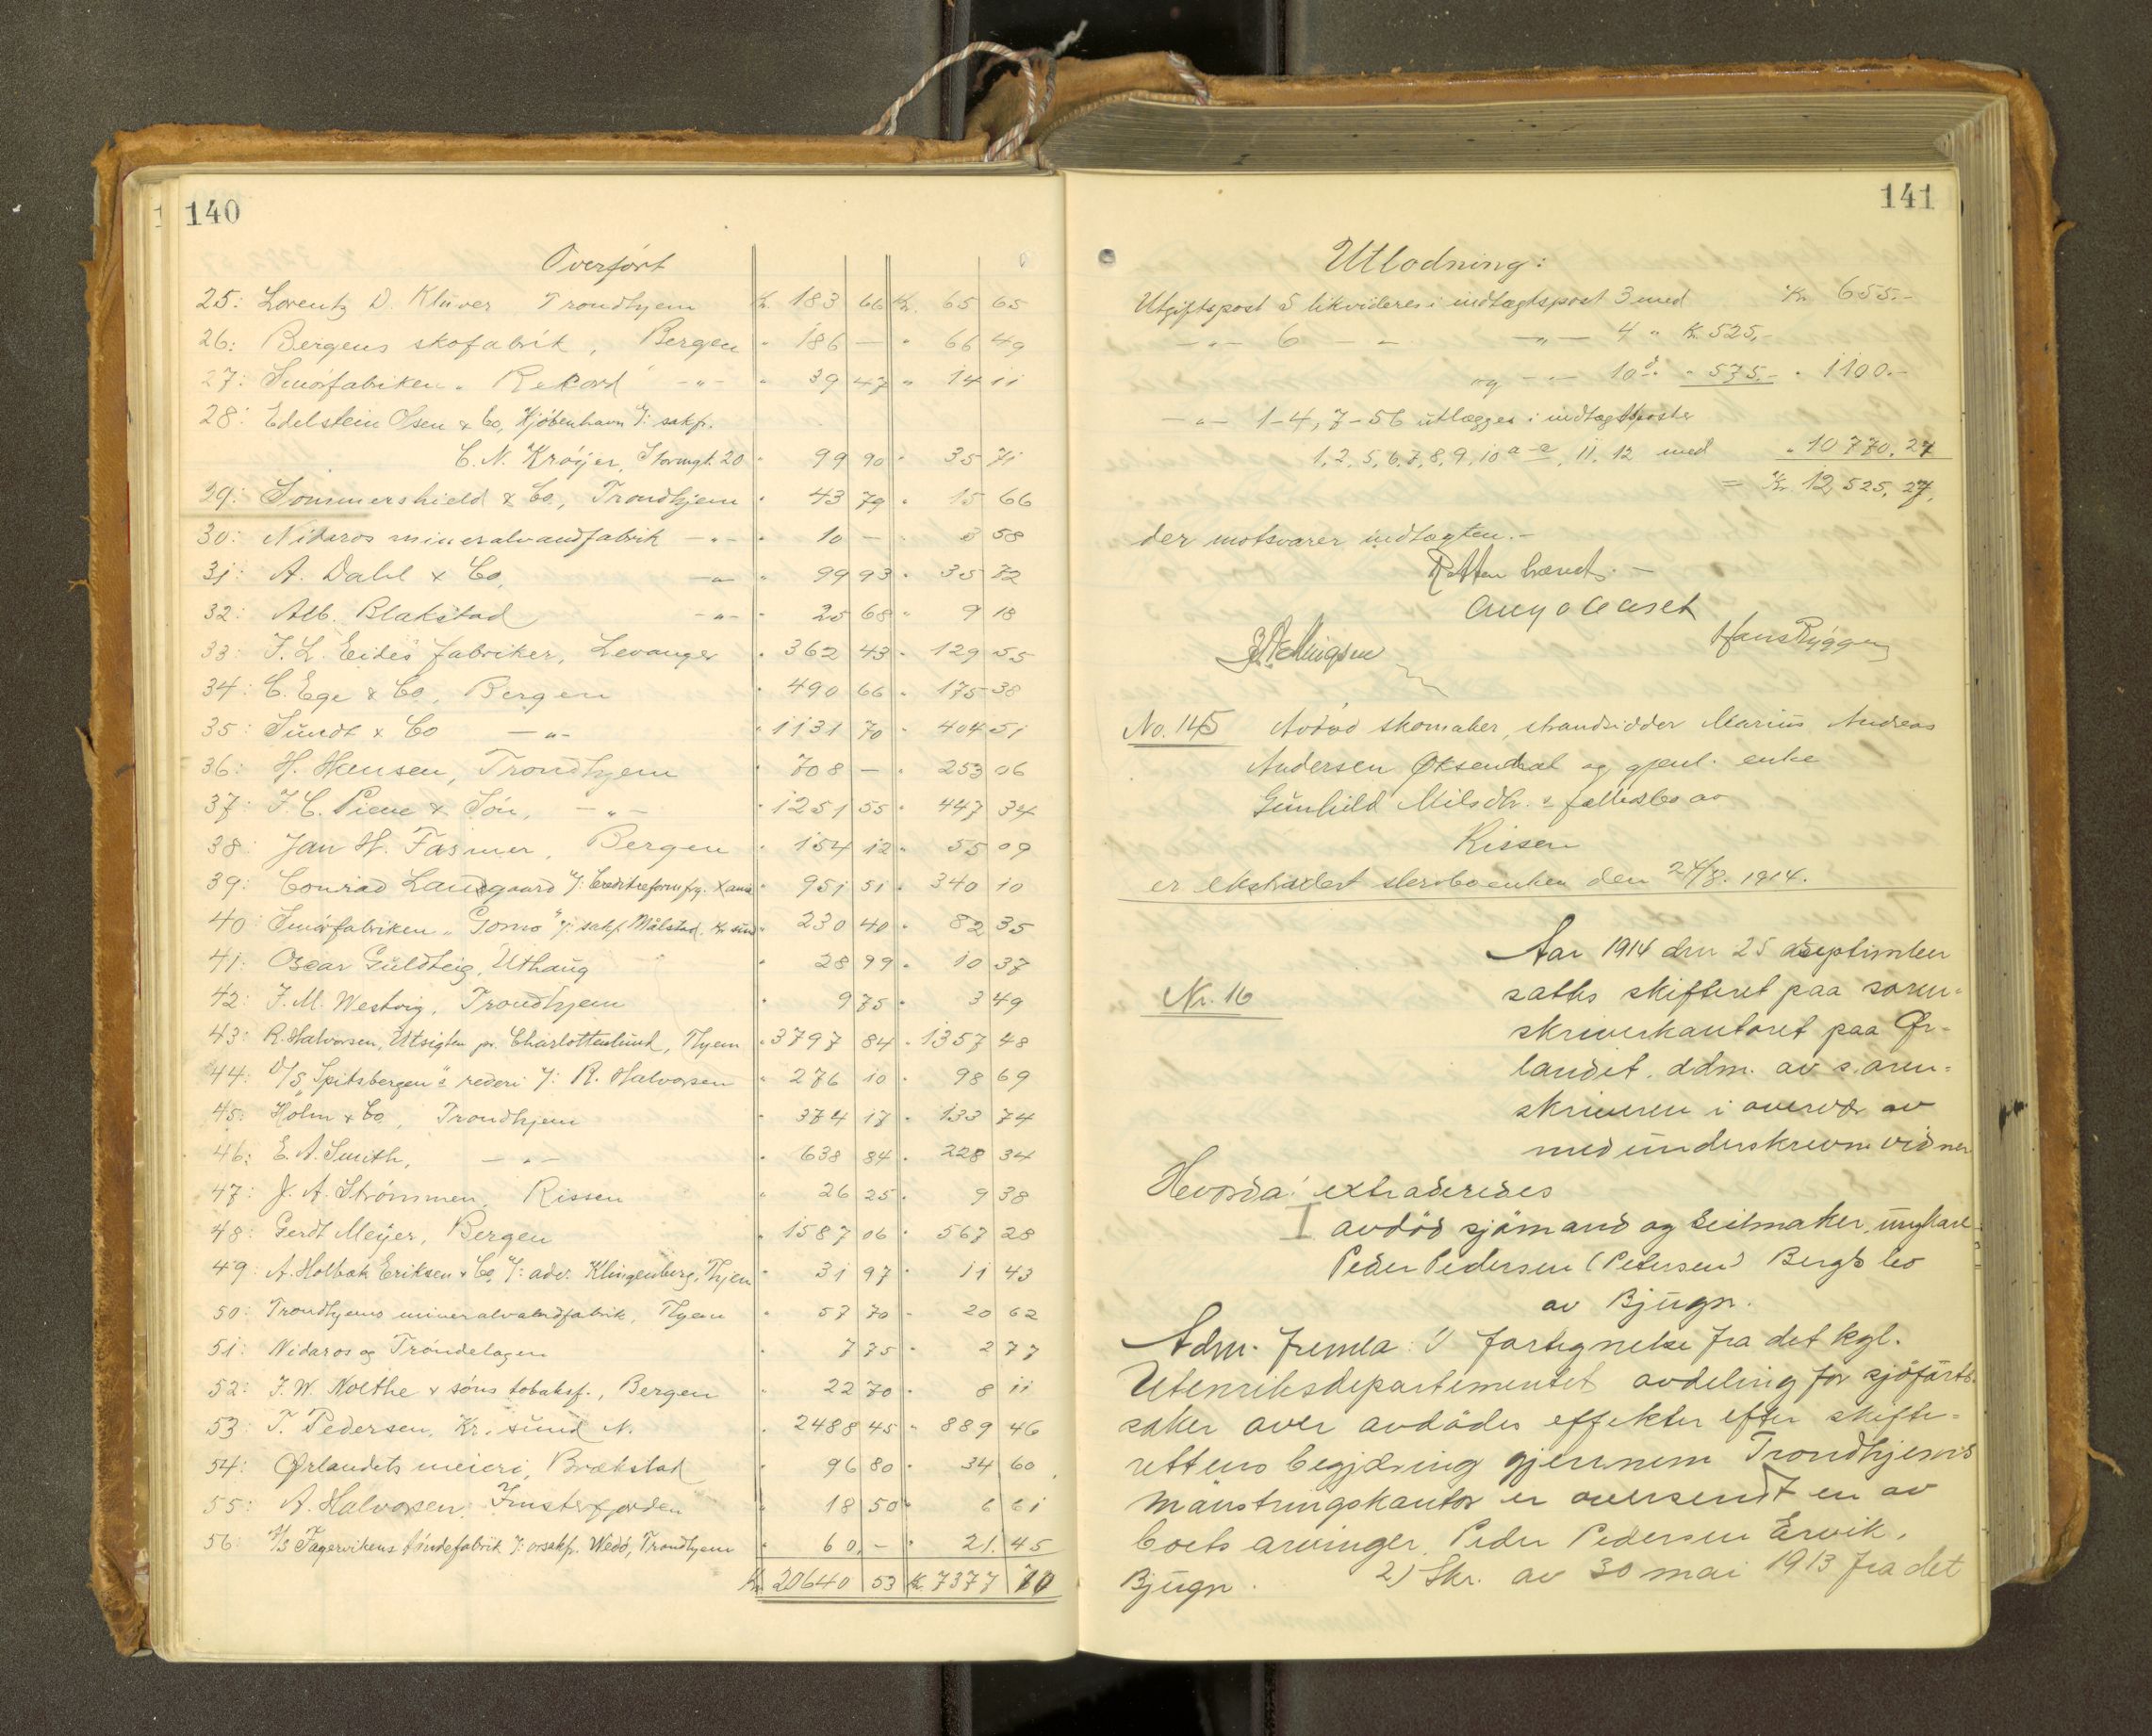 140
Overført
25: Lorentz D. Klüver Trondhjem Kr. 183 66 Kr. 65 65
26: Bergens skofabrik, Bergen " 186 — " 66 49
27: Smørfabriken "Rekord" -"- " 39 47 " 14 11
28: Edelstein Olsen & Co, Kjøbenhavn v: sakf.
C. N. Krøyer, Stormgt. 20 " 99 90 " 35 71
29: Sommershield & Co., Trondhjem " 43 79 " 15 66
30: Nidaros mineralvandfabrik -"- " 10 — " 3 58
31: A. Dahl & Co, -"- " 99 93 " 35 72
32: Alb. Blakstad -"- " 25 68 " 9 18
33: J. L. Eides fabriker, Levanger " 362 43 " 129 55
34: C. Ege & Co, Bergen " 490 66 " 175 38
35: Sundt & Co -"- " 1131 70 " 404 51
36: H. Hansen, Trondhjem " 708 — " 253 06
37: J. C. Piene & Søn, -"- " 1251 55 " 447 34
38: Jan H. Fasmer, Bergen " 154 12 " 55 09
39: Conrad Langgaard v: Creditreformfrg. Xania " 951 51 " 340 10
40: Smørfabriken "Gomo" v: sakf. Målstad. Kr sund " 230 40 " 82 35
41: Oscar Guldteig, Uthaug " 28 99 " 10 37
42: J. M. Westvig, Trondhjem " 9 75 " 3 49
43: R. Halvorsen, Utsigten pr. Charlottenlund, Thjem " 3797 84 " 1357 48
44: D/S "Spitsbergen"s rederi v: R. Halvorsen " 276 10 " 98 69
45: Holm & Co, Trondhjem " 374 17 " 133 74
46: E. A. Smith, -"- " 638 84 " 228 34
47: J. A. Strømmen, Rissen " 26 25 " 9 38
48: Gerdt Meyer, Bergen " 1587 06 " 567 28
49: A. Holbæk Eriksen & Co, v: adv. Klingenberg, Thjem " 31 97 " 11 43
50: Trondhjems mineralvandfabrik, Thjem " 57 70 " 20 62
51: Nidaros og Trøndelagen " 7 75 " 2 77
52: J. W. Nolthe & søns tobaksf., Bergen " 22 70 " 8 11
53: T. Pedersen, Kr. sund N. " 2488 45 " 889 46
54: Ørlandets meieri, Brækstad " 96 80 " 34 60
55: A. Halvorsen, Imsterfjorden " 18 50 " 6 61
56: A/S Fagervikens tøndefabrik v: orsakf. Wedø, Trondhjem " 60.- " 21.45
Kr. 20640 53 Kr. 7377 10
141
Utlodning:
Utgiftspost 5 likvideres i indtægtspost 3 med Kr. 655.-
-"- 6 -"- -"- 4 " Kr. 525,-
og -"- 10 d: " 575.- " 1100.-
-"- 1-4, 7-56 utlægges i indtægtsposter
1, 2, 5, 6, 7, 8, 9, 10 a-c, 11, 12 med " 10770,27
= Kr. 12,525,27,
der motsvarer indtægten.-
Retten hævet. -
Aug. Aaset
Hans Ryggen
No. 145 Avdød skomaker, strandsidder Marius Andreas
Andersen Øksendal og gjenl. enke
Gunhild Nilsdtr.s fællesbo av
Rissen
er ekstradert sterboenken den 24/8. 1914.
Nr. 16
Aar 1914 den 25 september
sattes skifteret paa soren-
skriverkantoret paa Ør-
landet, adm. av soren-
skriveren i overvær av
medunderskrevne vidner
Hvorda: extraderedes
I avdød sjømand og seilmaker, ungkarl
Peder Pedersen (Petersen) Bergs bo
av Bjugn.
Adm. fremla: 1) fortegnelse fra det kgl.
Utenriksdepartementet avdeling for sjøfarts-
saker over avdødes effekter efter skifte-
rettens begjæring gjennem Trondhjems
mønstringskontor er oversendt en av
boets arvinger Peder Pedersen Ervik,
Bjugn. 2) Skr. av 30 mai 1913 fra det